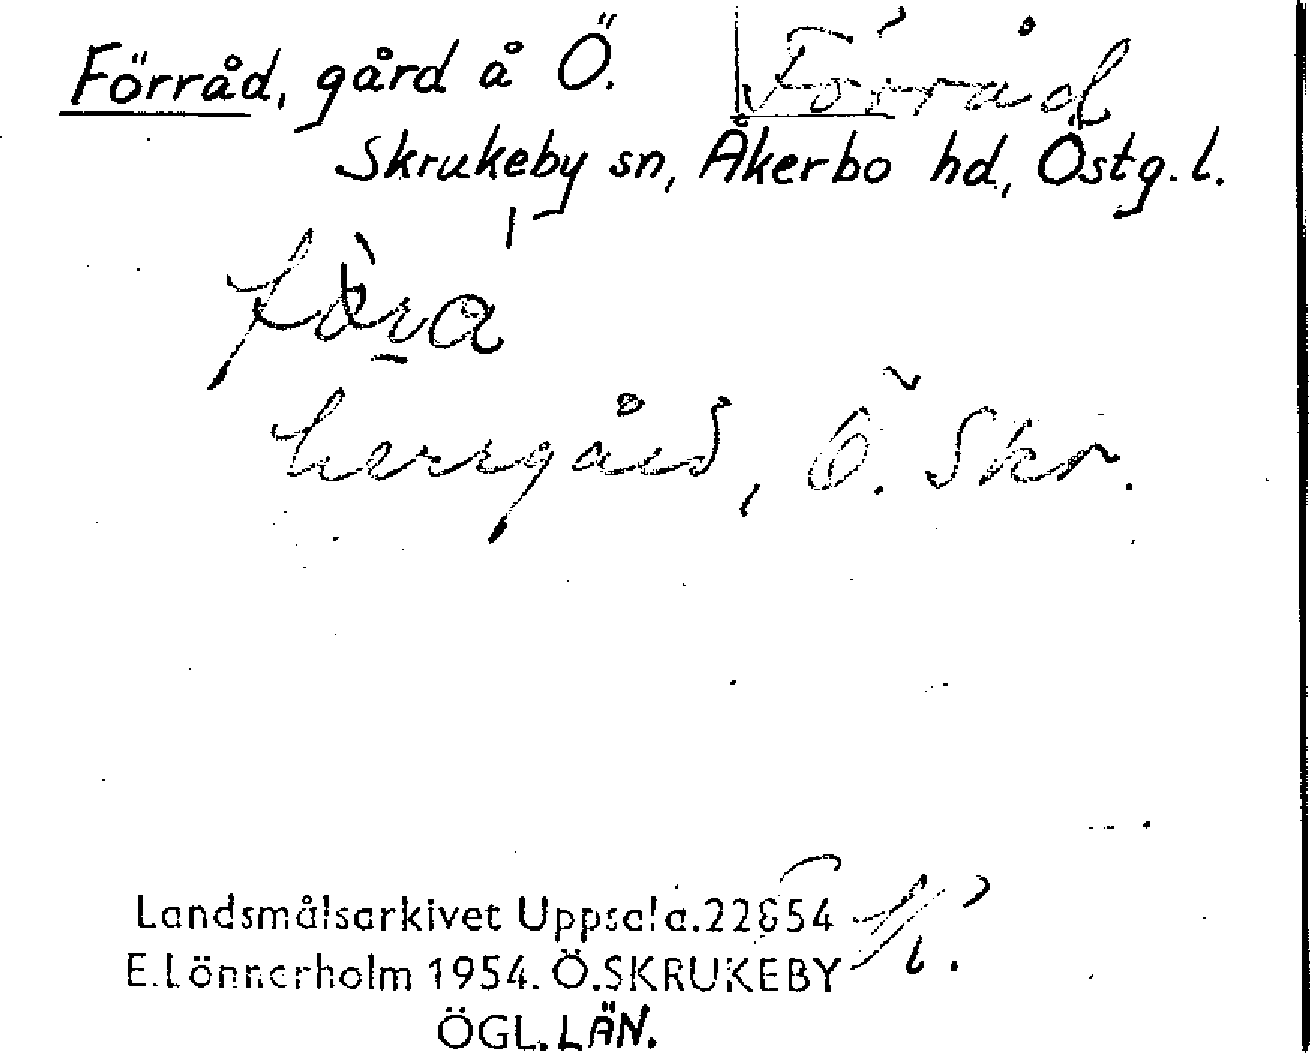 Förråd, gård å Ö.
Förråd
Skrukeby sn, Åkerbo hd, Östg. l.
herrgård, Ö. Skr.
Landsmålsarkivet Uppsala. 22654
E. Lönnerholm 1954. Ö. SKRUKEBY
ÖGL. LÄN.